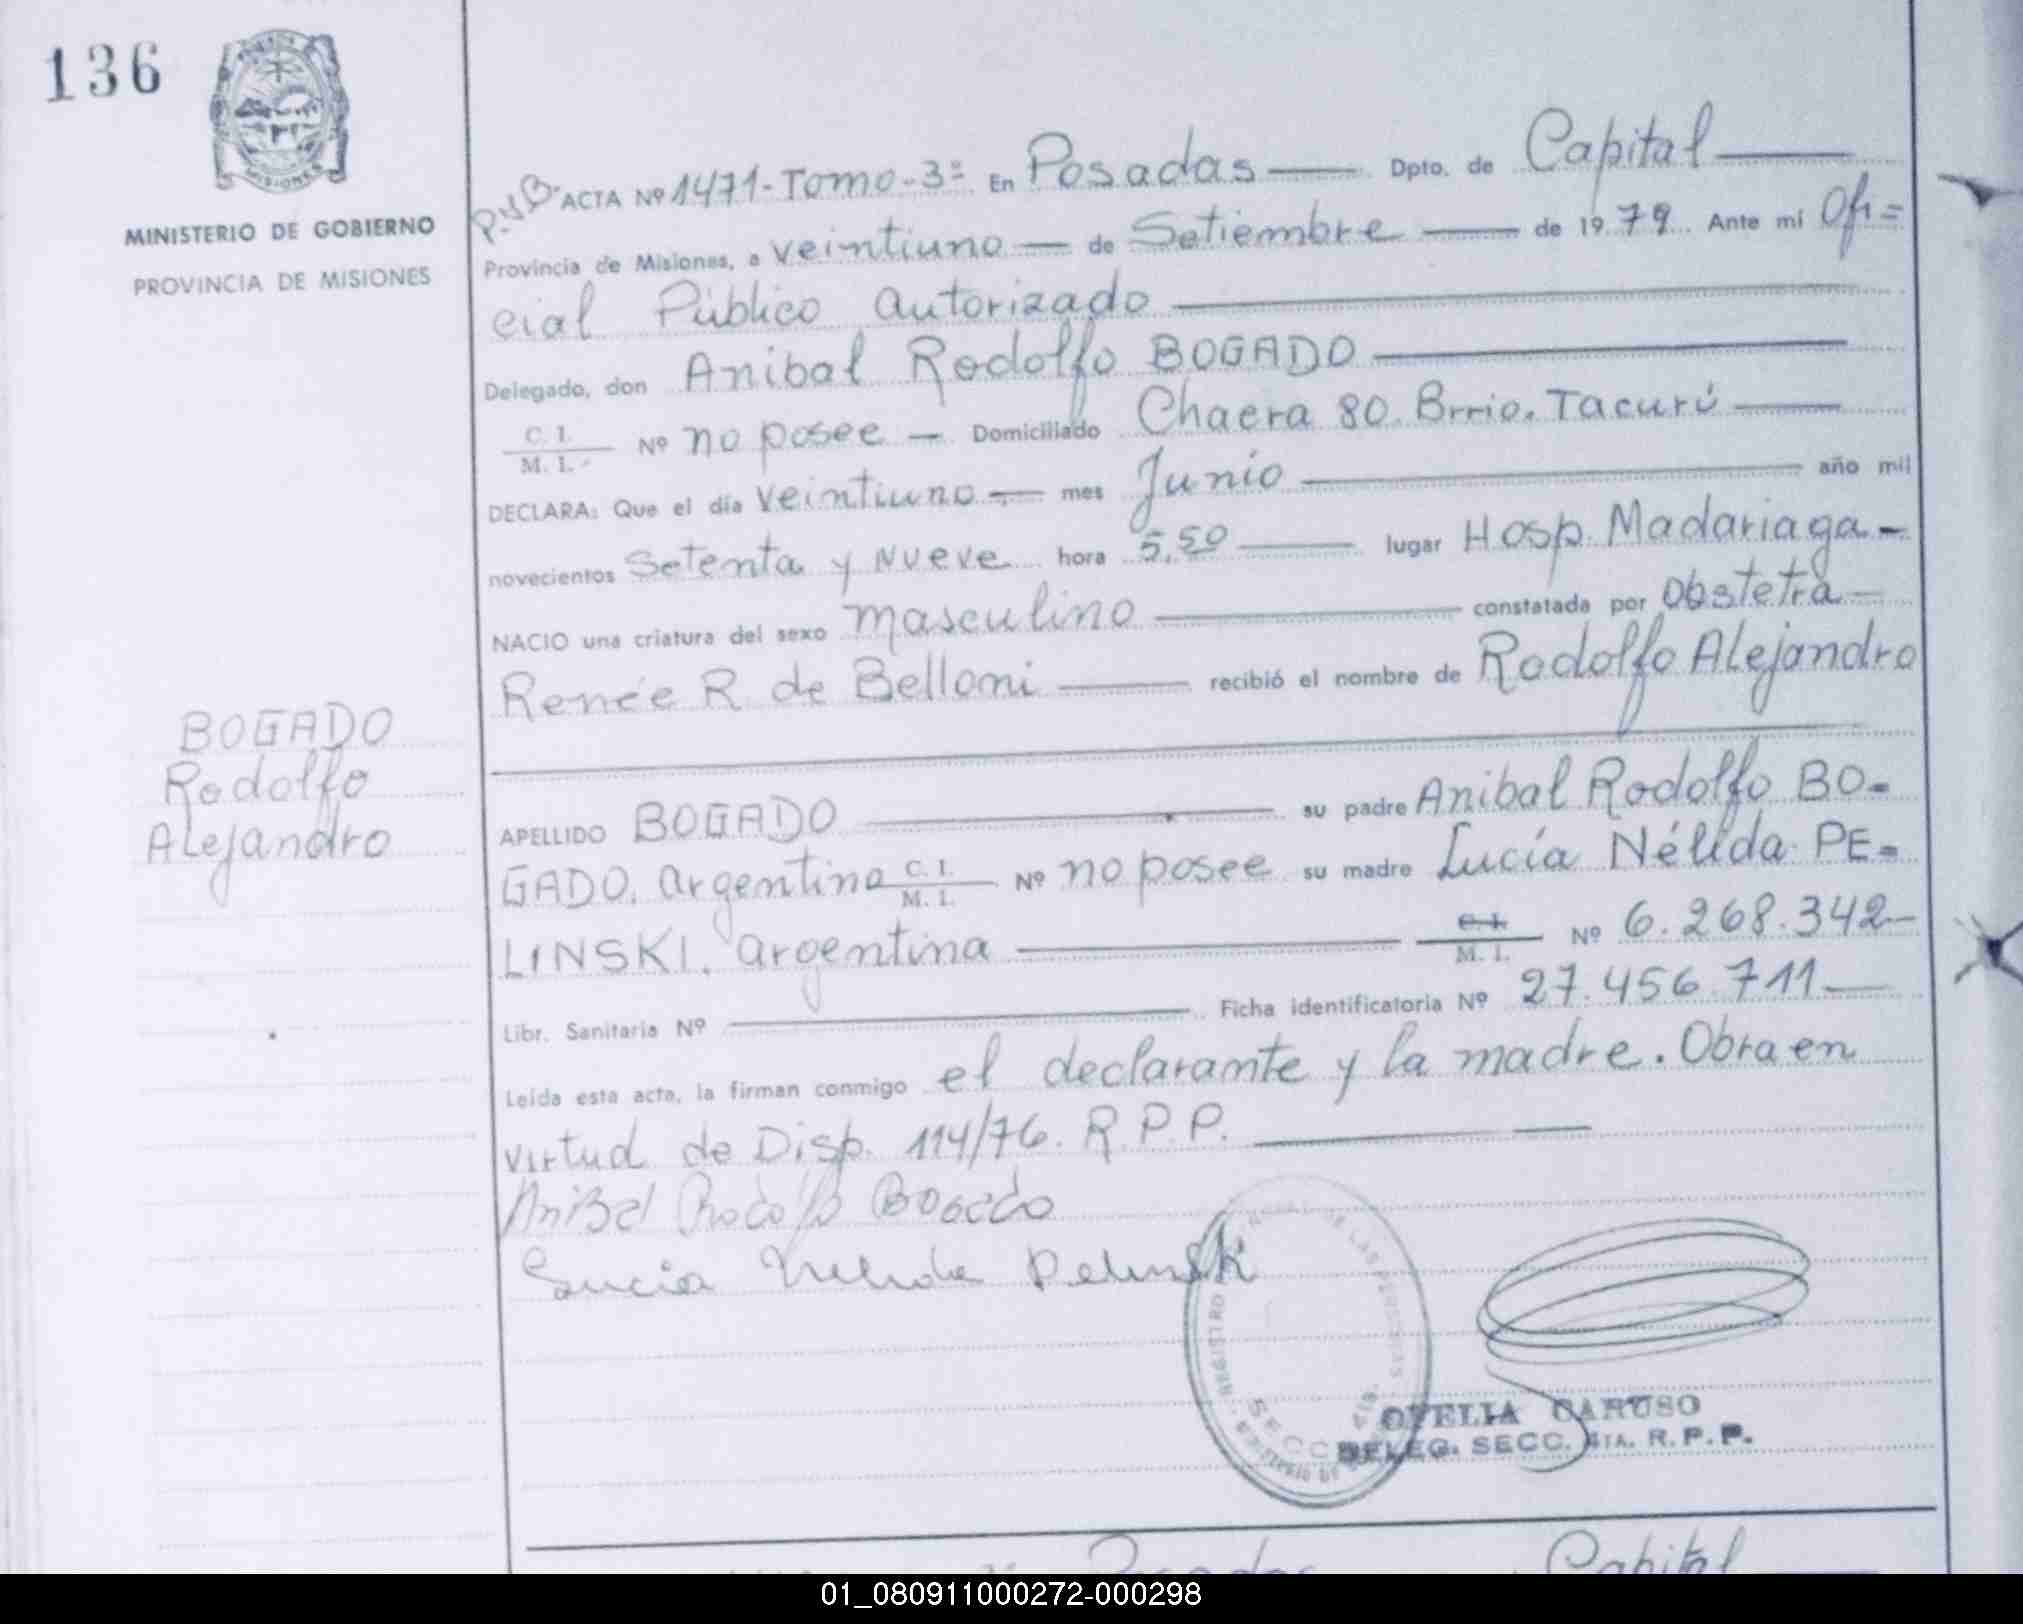 136
MISIONES
MINISTERIO DE GOBIERNO
PROVINCIA DE MISIONES
BOGADO
Rodolfo
Alejandro
P.V.B. ACTA Nº 1471-Tomo-3º En Posadas — Dpto. de Capital —
Provincia de Misiones, a veintiuno — de Setiembre — de 1979. Ante mí Ofi=
cial Público autorizado —
Delegado, don Anibal Rodolfo BOGADO —
C. I. / M. I. Nº no posee — Domiciliado Chacra 80. Brrio. Tacurú —
DECLARA: Que el día veintiuno — mes Junio — año mil
novecientos Setenta y Nueve hora 5,50 — lugar Hosp. Madariaga -
NACIO una criatura del sexo masculino — constatada por Obstetra —
Renée R. de Belloni — recibió el nombre de Rodolfo Alejandro
—
APELLIDO BOGADO — su padre Anibal Rodolfo BO=
GADO. argentino C. I. / M. I. Nº no posee su madre Lucía Nélida PE=
LINSKI. argentina — C. I. / M. I. Nº 6.268.342 —
Libr. Sanitaria Nº — Ficha identificatoria Nº 27.456.711 —
Leída esta acta, la firman conmigo el declarante y la madre. Obra en
virtud de Disp. 114/76. R.P.P. —
Anibal Rodolfo Bogado
Lucia Nelida Pelinski
REGISTRO PROVINCIAL DE LAS PERSONAS
SECC. 4ta.
OFELIA CARUSO
DELEG. SECC. 4TA. R.P.P.
Posadas Capital
01_080911000272-000298